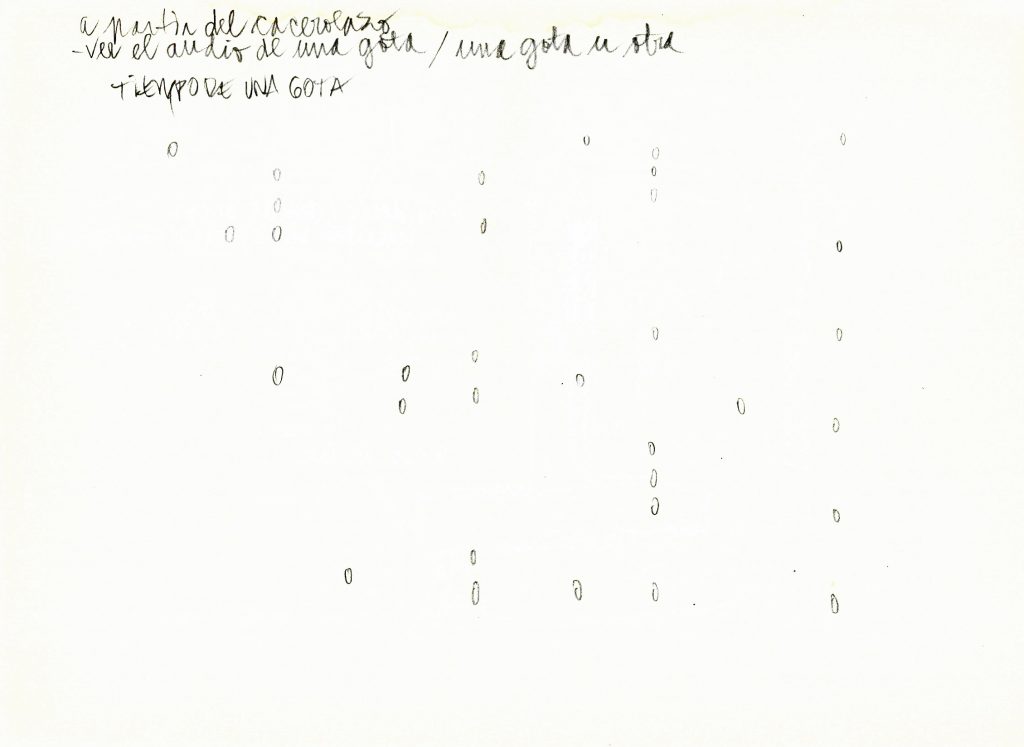 a partir del cacerolazo
-ver el audio de una gota / una gota u otra
TIEMPO DE UNA GOTA